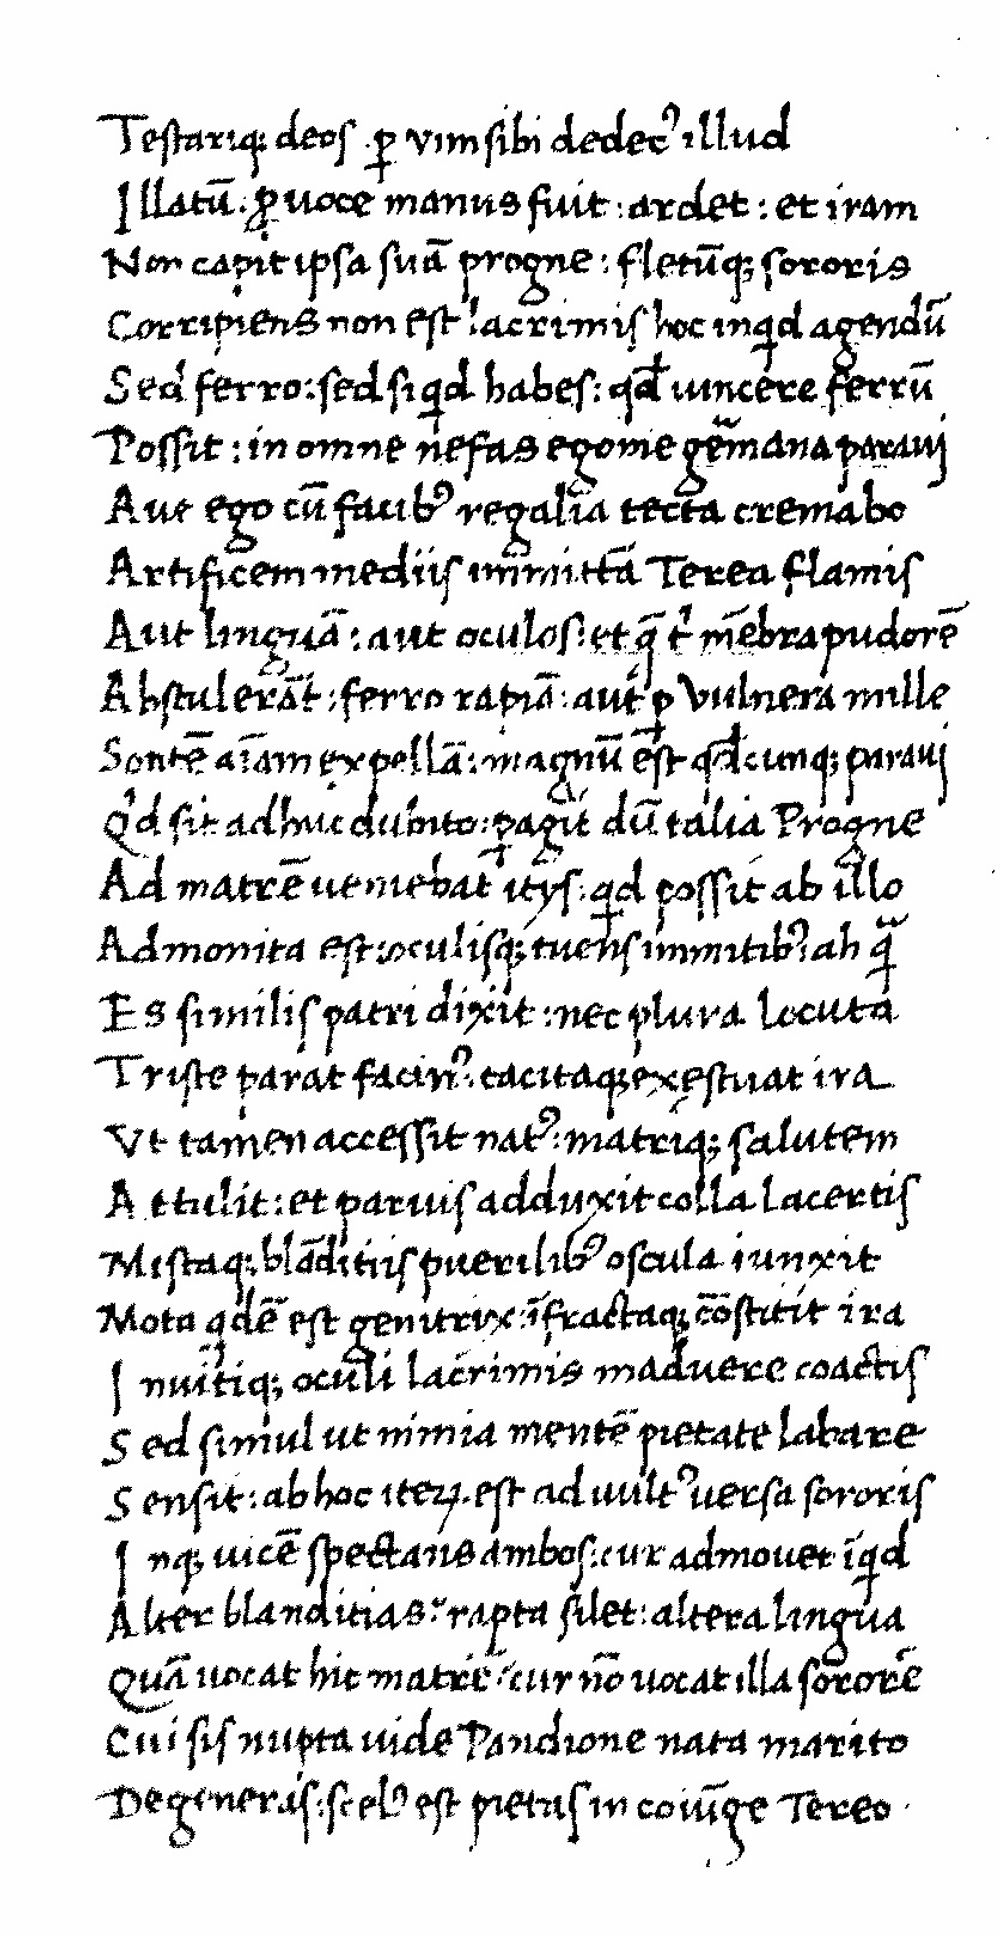 Testariq; deos ꝑ vim sibi dedecꝰ illud
Illatū. ꝓ uoce manus fuit : ardet : et iram
Non capit ipsa suā progne : fletūq; sororis
Corripiens non est lacrimis hoc inqd agendū
Sed ferro : sed siqd habes : qd uincere ferrū
Possit : in omne nefas egome gēmana paraui
Aut ego cū facibꝰ regalia tecta cremabo
Artificem mediis immittā Terea flamis
Aut linguā : aut oculos : et q̄ t' mēbra pudorē
Abstulerāt : ferro rapiā : aut ꝑ vulnera mille
Sontē aīam expellā : magnū est qdcunq; paraui
Qd sit adhuc dubito : ꝑagit dū talia Progne
Ad matrē ueniebat itys : qd possit ab illo
Admonita est : oculisq; tuens immitibꝰ : ah q̄
Es similis patri dixit : nec plura locuta
Triste parat facinꝰ : tacitaq; exęstuat ira
Vt tamen accessit natꝰ : matriq; salutem
Attulit : et paruis adduxit colla lacertis
Mistaq; blāditiis puerilibꝰ oscula iunxit
Mota qdē est genitrix : īfractaq; cōstitit ira
Inuitiq; oculi lacrimis maduere coactis
Sed simul ut nimia mentē pietate labare
Sensit : ab hoc iteꝝ. est ad uultꝰ uersa sororis
Inq; uicē spectans ambos : cur admouet īqd
Alter blanditias : rapta silet : altera lingua
Quā uocat hic matrē : cur nō uocat illa sororē
Cui sis nupta uide Pandione nata marito
Degeneras : scelꝰ est pietas in coiūge Tereo .